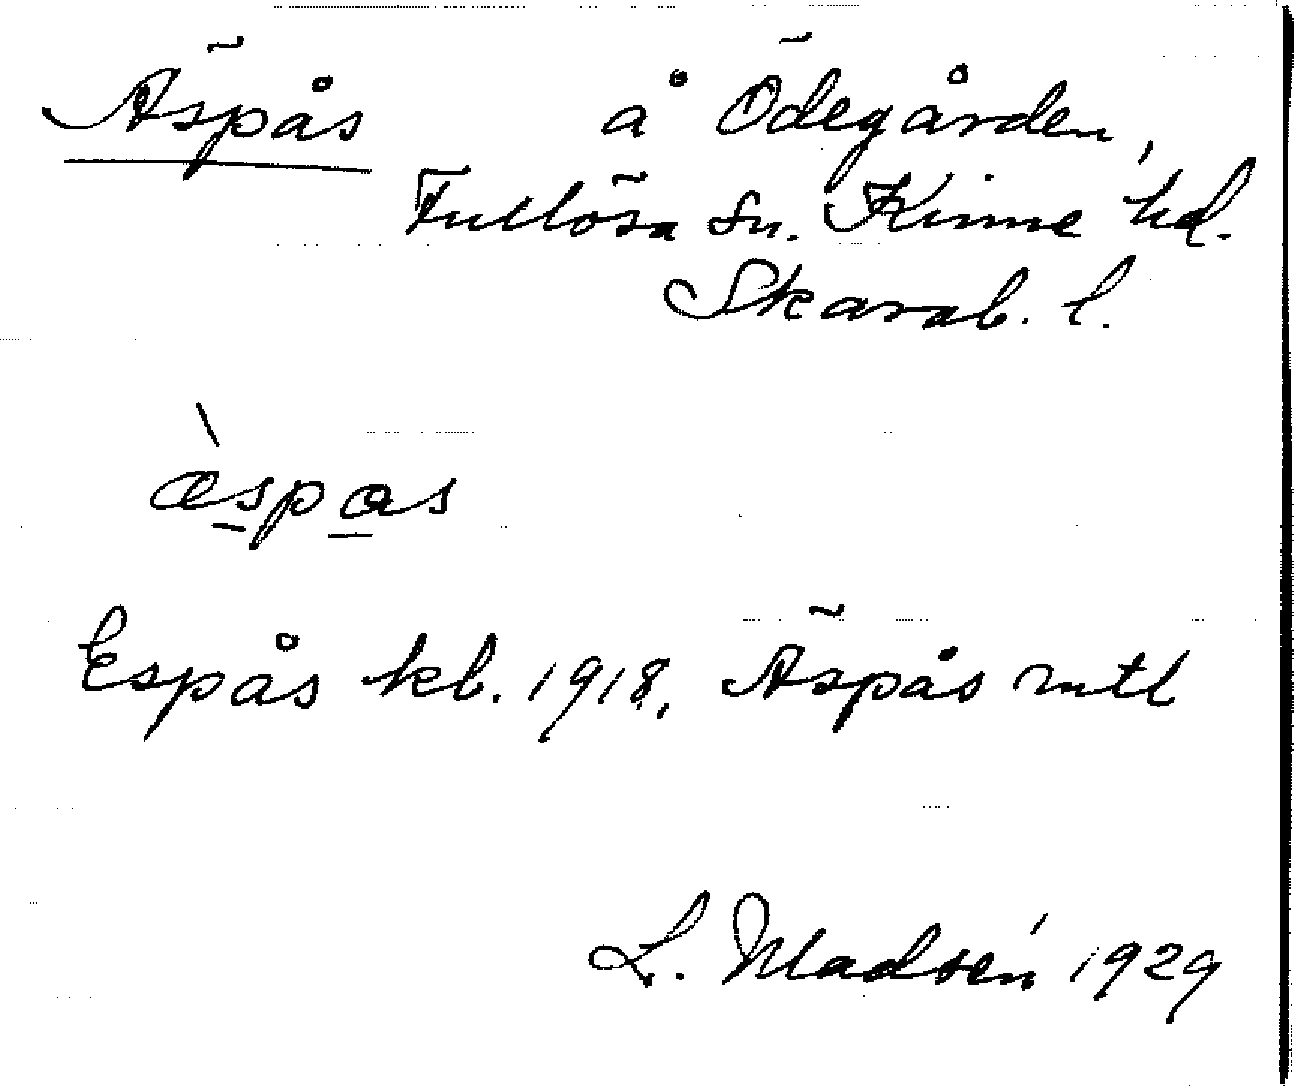 Äspås å Ödegården,
Fullösa sn. Kinne hd.
Skarab. l.
æ̀spas
Espås kb. 1918, Äspås mtl
L. Madsén 1929